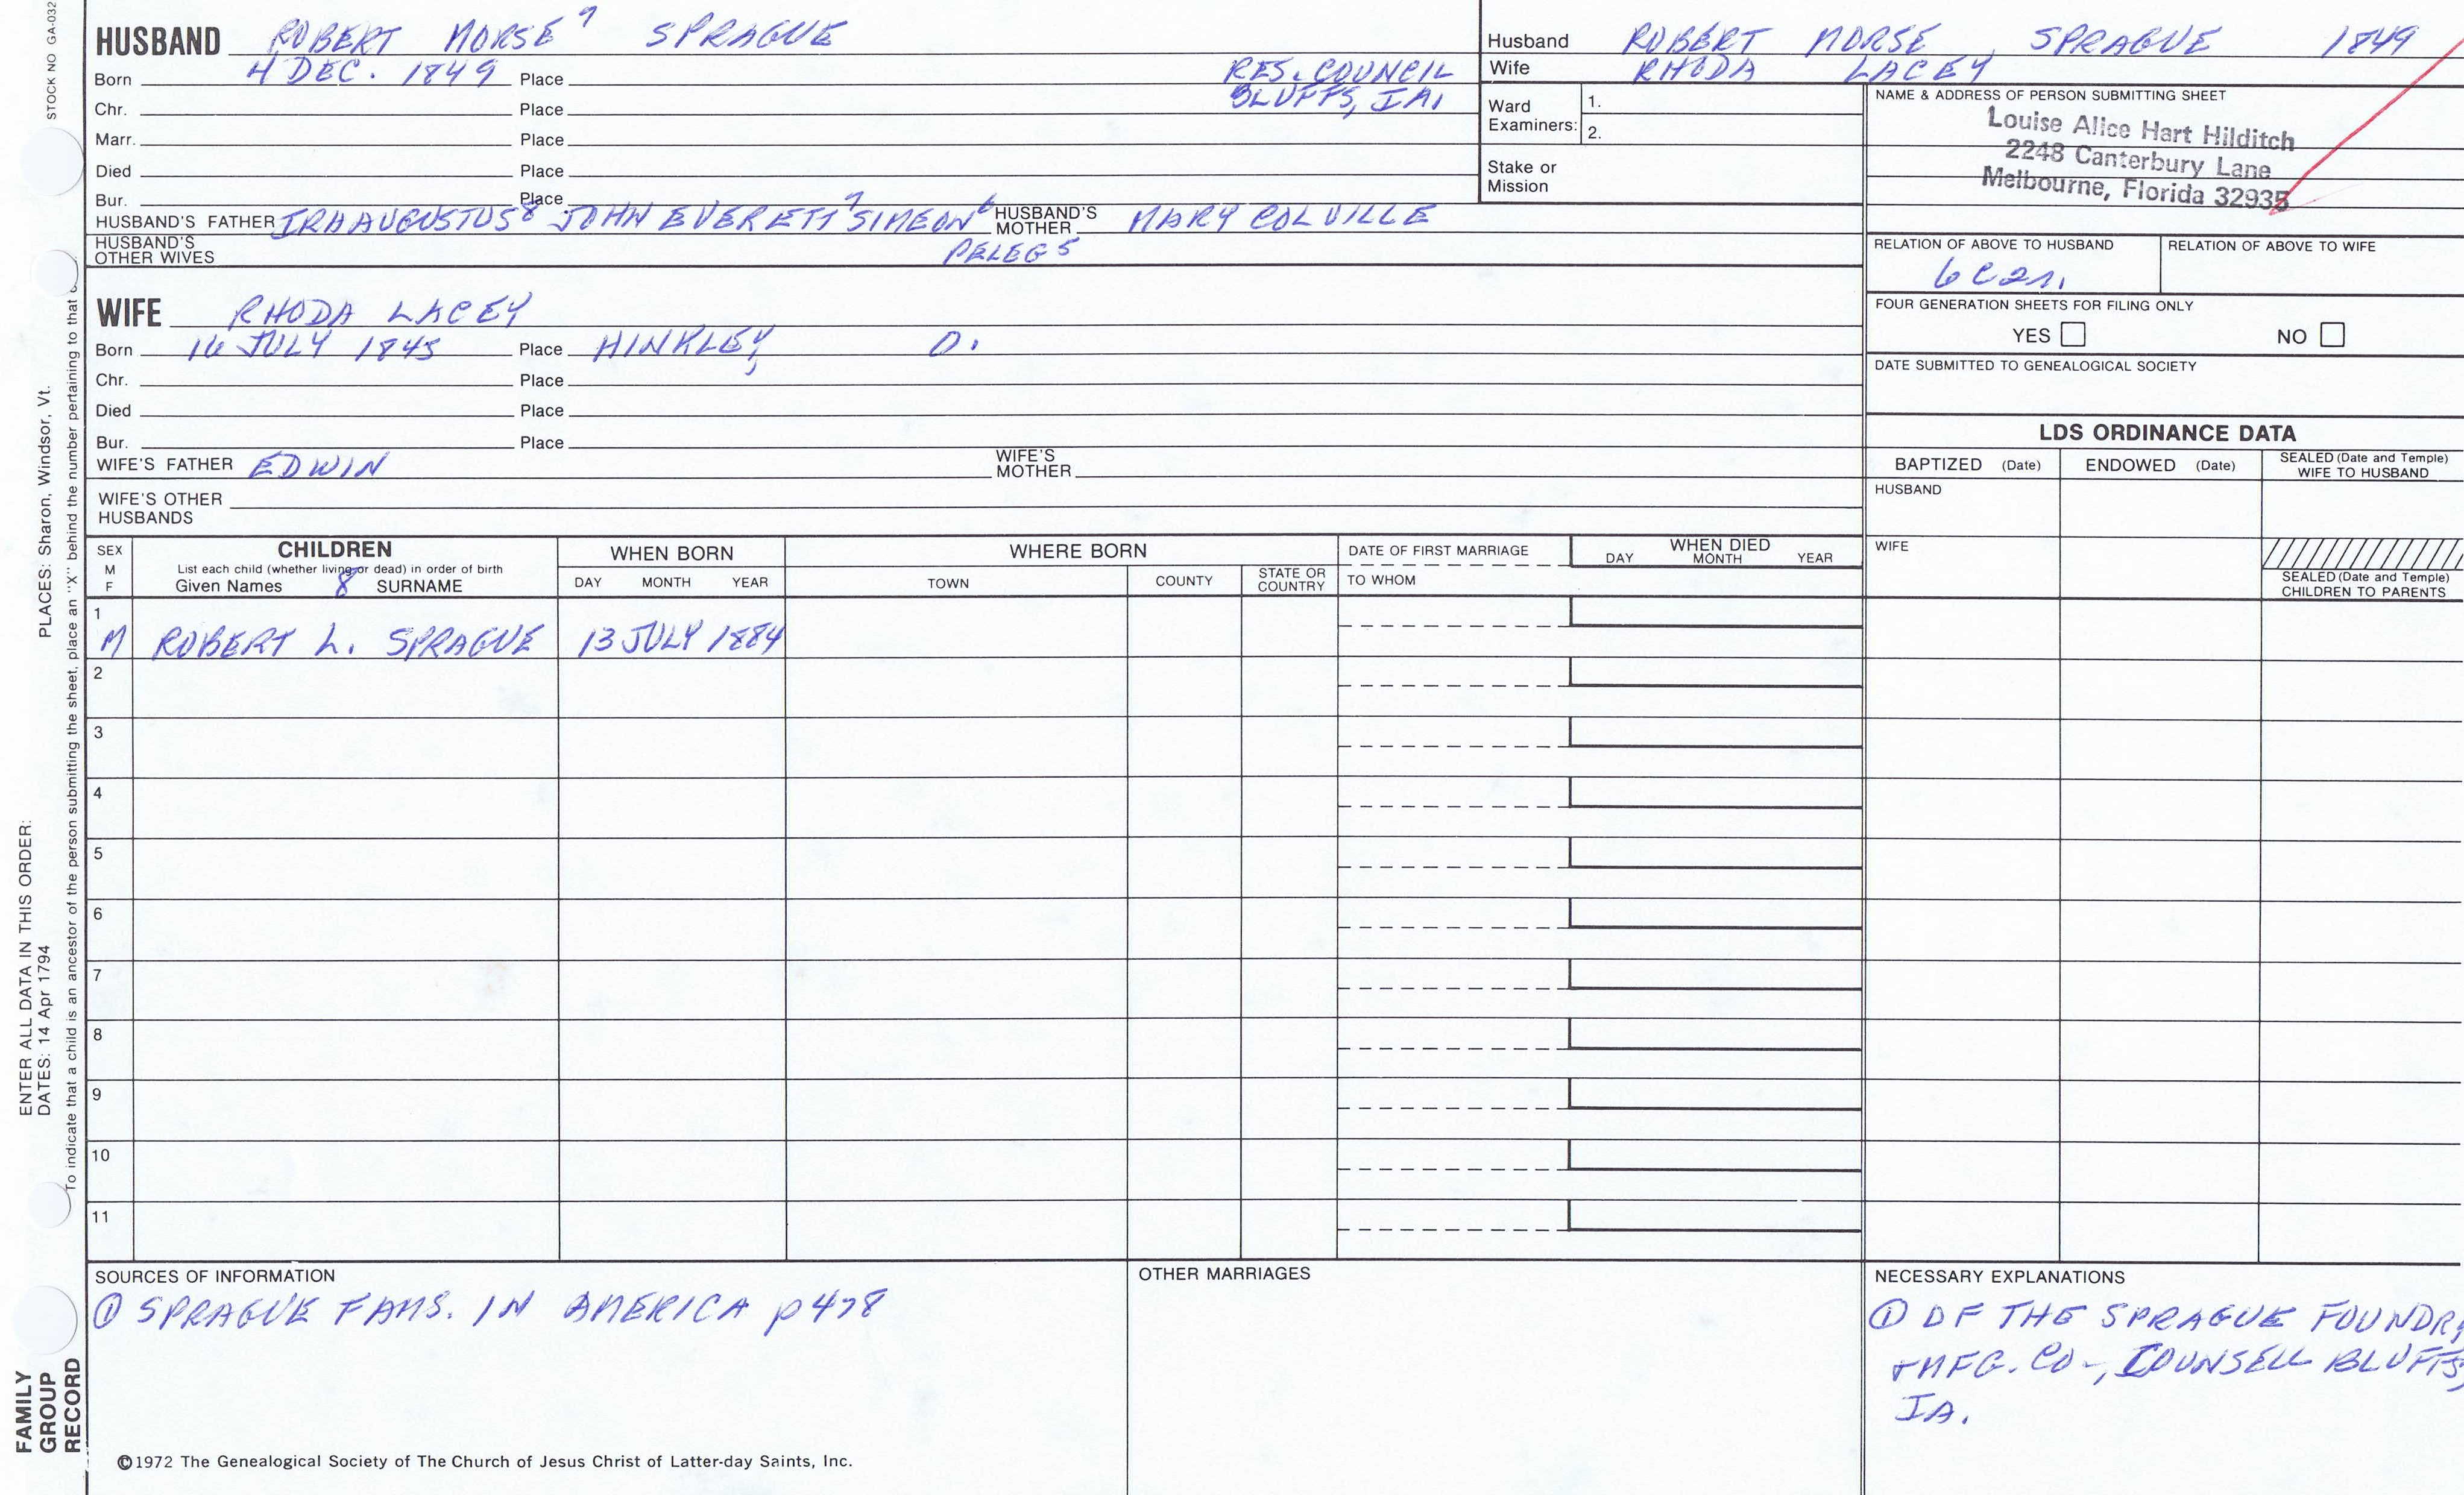 STOCK NO GA-032
HUSBAND ROBERT MORSE 9 SPRAGUE
Born 4 DEC. 1849 Place RES. COUNCIL
BLUFFS, IA.
Chr. Place
Marr. Place
Died Place
Bur. Place
HUSBAND'S FATHER IRA AUGUSTUS 8 JOHN EVERETT 7 SIMEON 6 HUSBAND'S MOTHER MARY COLVILLE
HUSBAND'S OTHER WIVES PELEG 5
Husband ROBERT MORSE, SPRAGUE 1849
Wife RHODA LACEY
Ward Examiners: 1.
2.
Stake or Mission
NAME & ADDRESS OF PERSON SUBMITTING SHEET
Louise Alice Hart Hilditch
2248 Canterbury Lane
Melbourne, Florida 32935
RELATION OF ABOVE TO HUSBAND RELATION OF ABOVE TO WIFE
6C2r.
FOUR GENERATION SHEETS FOR FILING ONLY
YES NO
DATE SUBMITTED TO GENEALOGICAL SOCIETY
WIFE RHODA LACEY
Born 16 JULY 1845 Place HINKLEY, O.
Chr. Place
Died Place
Bur. Place
WIFE'S FATHER EDWIN WIFE'S MOTHER
WIFE'S OTHER HUSBANDS
LDS ORDINANCE DATA
BAPTIZED (Date) ENDOWED (Date) SEALED (Date and Temple) WIFE TO HUSBAND
HUSBAND
WIFE
SEALED (Date and Temple)
CHILDREN TO PARENTS
SEX M F
CHILDREN
List each child (whether living or dead) in order of birth
Given Names 8 SURNAME
WHEN BORN
DAY MONTH YEAR
WHERE BORN
TOWN COUNTY STATE OR COUNTRY
DATE OF FIRST MARRIAGE
TO WHOM
WHEN DIED
DAY MONTH YEAR
1
M ROBERT L. SPRAGUE 13 JULY 1884
2
3
4
5
6
7
8
9
10
11
SOURCES OF INFORMATION
① SPRAGUE FAMS. IN AMERICA p478
OTHER MARRIAGES
NECESSARY EXPLANATIONS
① OF THE SPRAGUE FOUNDRY
+ MFG. CO-, COUNSELL BLUFFS,
IA.
©1972 The Genealogical Society of The Church of Jesus Christ of Latter-day Saints, Inc.
FAMILY
GROUP
RECORD
ENTER ALL DATA IN THIS ORDER:
DATES: 14 Apr 1794
PLACES: Sharon, Windsor, Vt.
To indicate that a child is an ancestor of the person submitting the sheet, place an "X" behind the number pertaining to that